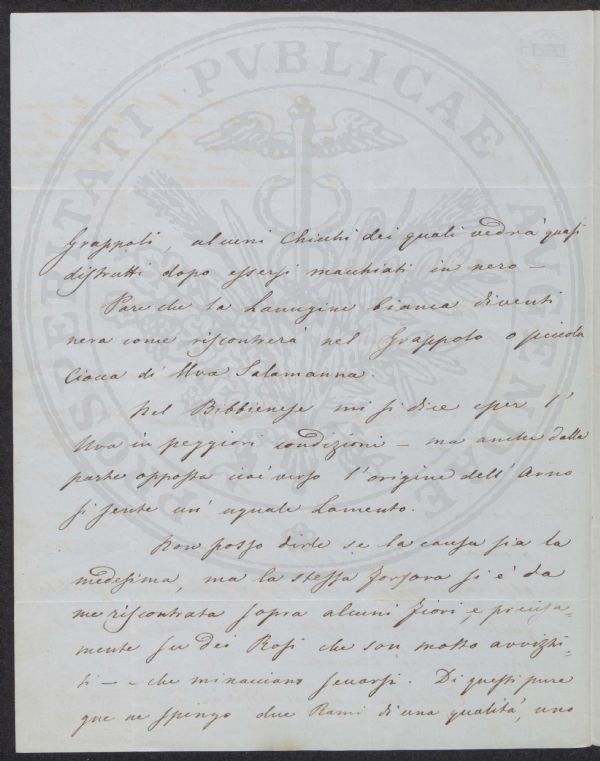 PROSPERITATI PVBLICAE AVGENDAE
Grappoli, alcuni Chicchi dei quali vedrà quasi
distrutti dopo essersi macchiati in nero —
Pare che la Lanugine bianca diventi
nera come riscontrerà nel Grappolo o piccola
Ciocca di Uva Salamanna.
Nel Bibbienese mi si dice esser l'
Uva in peggiori condizioni — ma anche dalla
parte opposta cioè verso l'origine dell'Arno
si sente un' uguale Lamento.
Non posso dirle se la causa sia la
medesima, ma la stessa forfora si è da
me riscontrata sopra alcuni fiori, e precisa-
mente su dei Rosi che son molto avvizzi-
ti — e che minacciano seccarsi. Di questi pure
que ne spingo due Rami di una qualità, uno